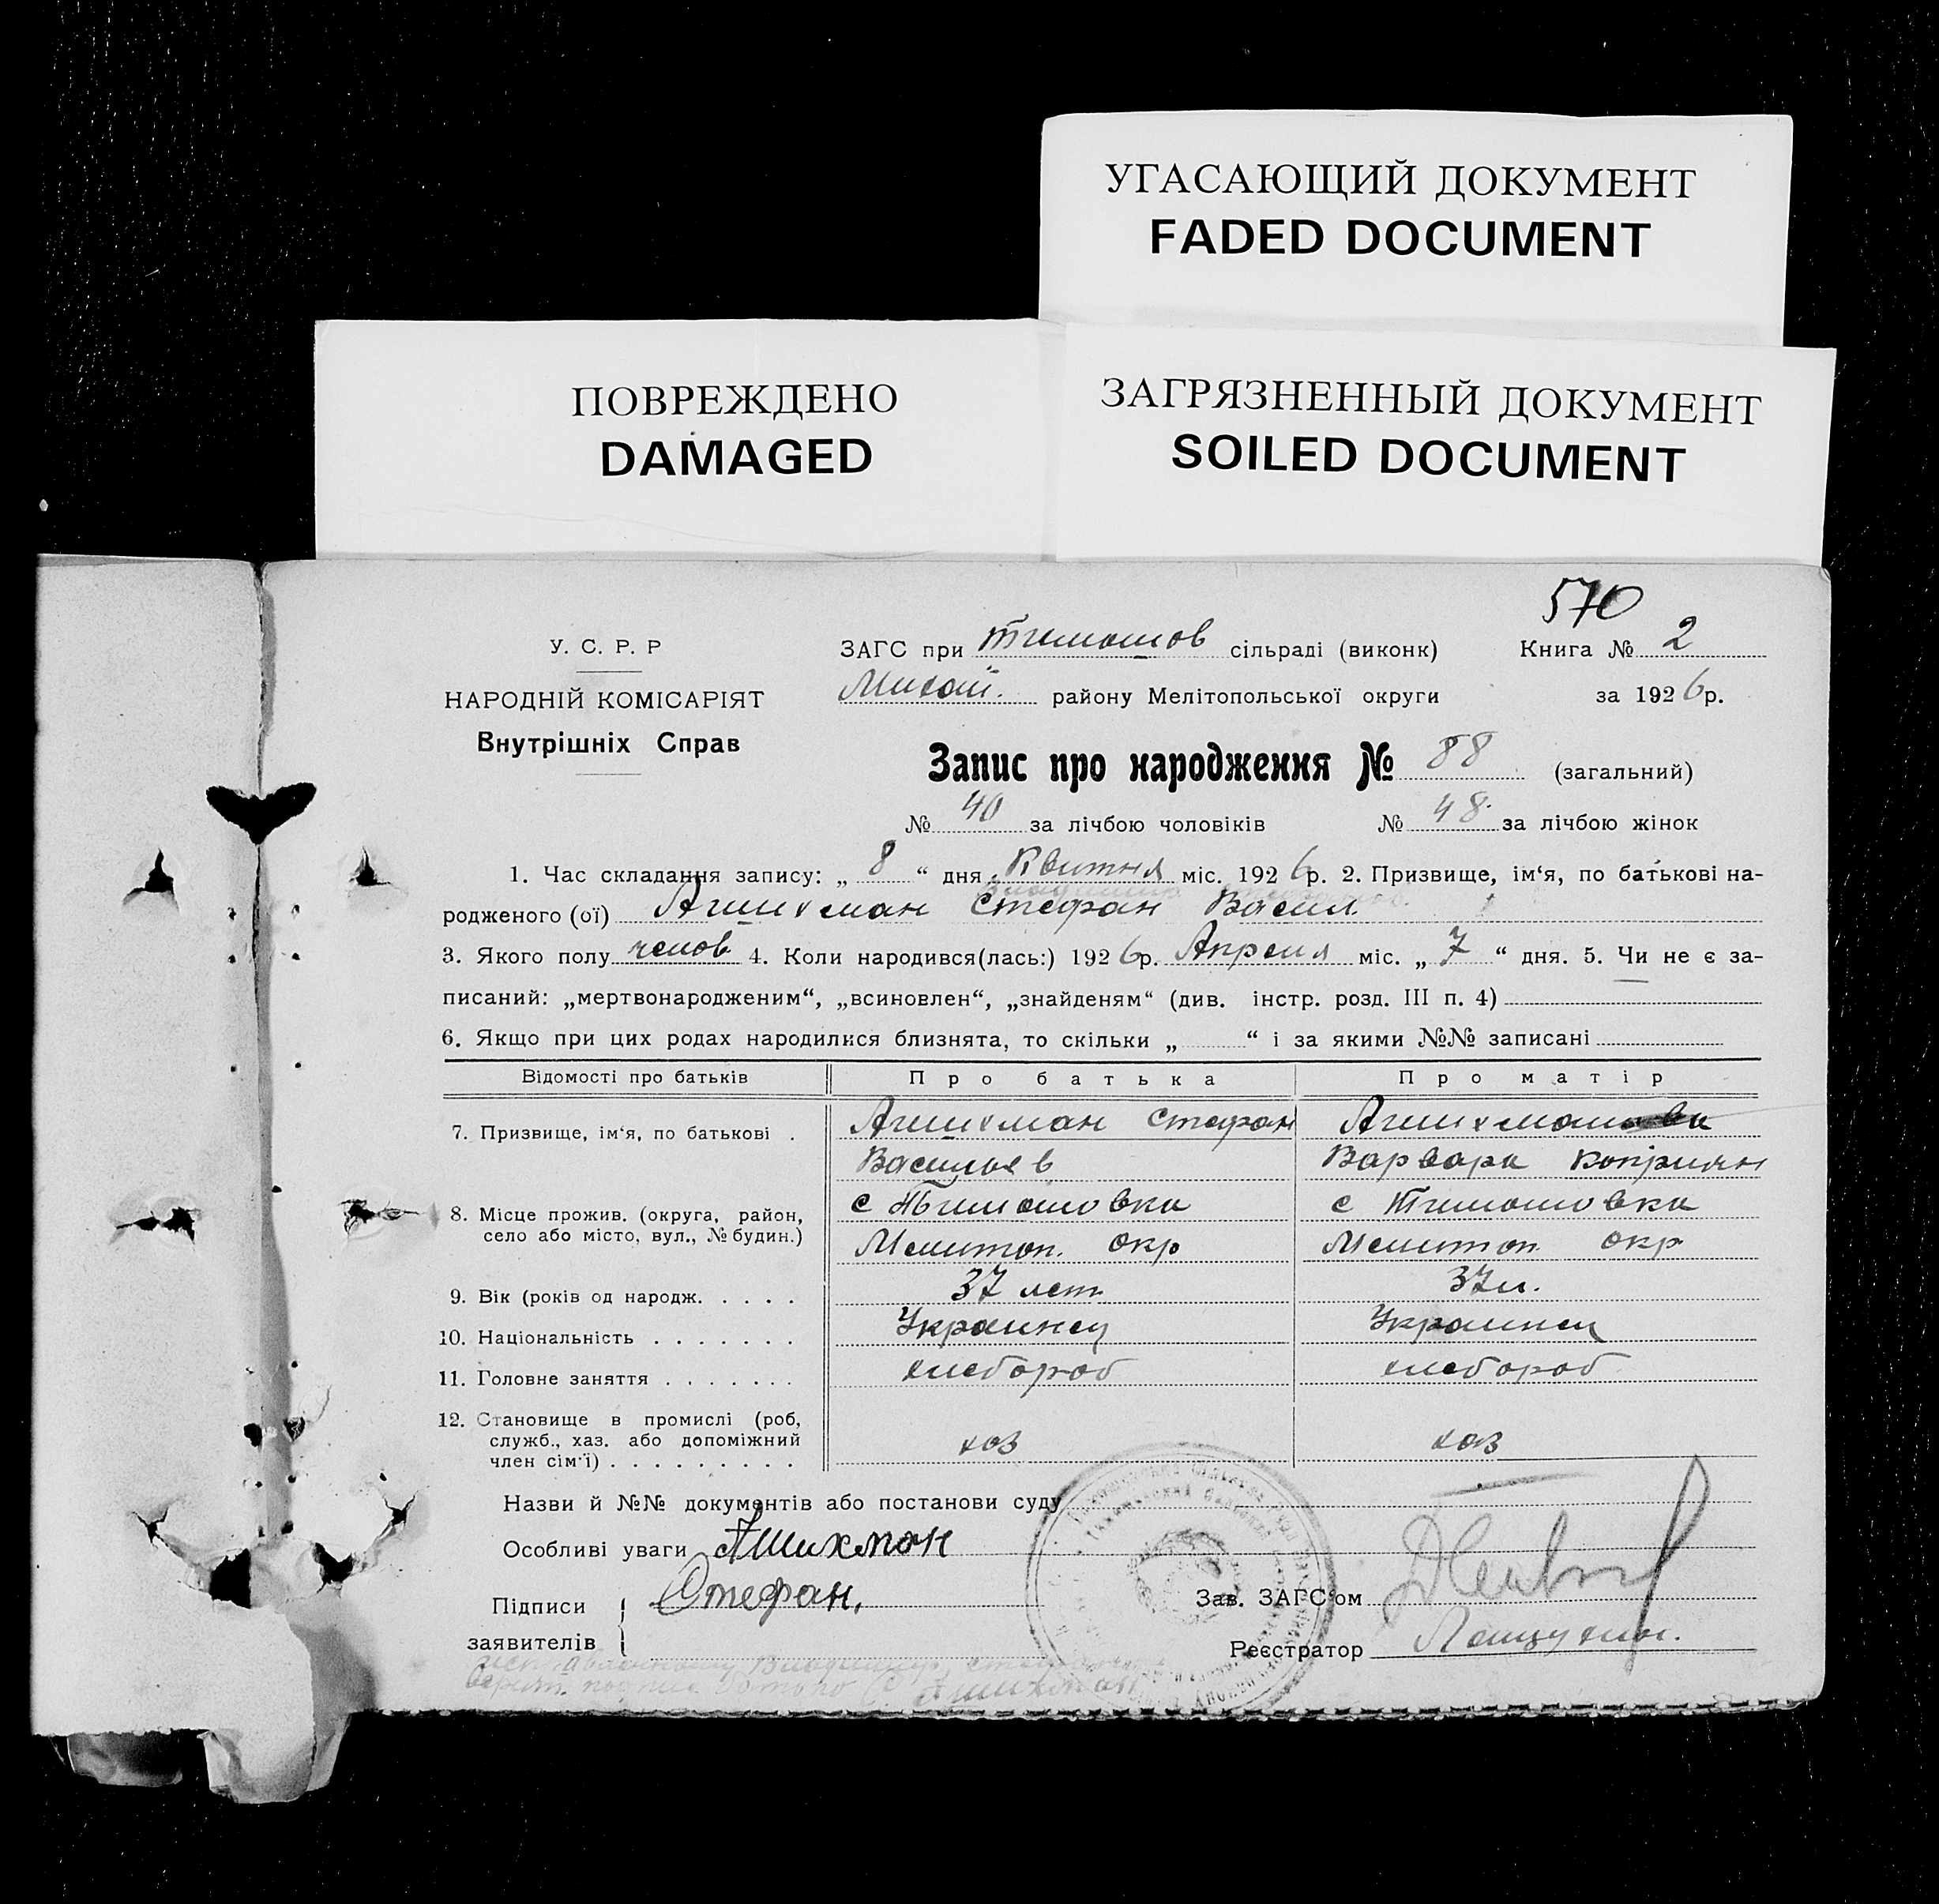 УГАСАЮЩИЙ ДОКУМЕНТ
FADED DOCUMENT
ПОВРЕЖДЕНО
DAMAGED
ЗАГРЯЗНЕННЫЙ ДОКУМЕНТ
SOILED DOCUMENT
570
У. С. Р. Р
НАРОДНІЙ КОМІСАРІЯТ
Внутрішніх Справ
ЗАГС при Тимошов сільраді (виконк) Книга № 2
Михай. району Мелітопольської округи за 1926р.
Запис про народження № 88 (загальний)
№ 40 за лічбою чоловіків № 48 за лічбою жінок
1. Час складання запису: „ 8 “ дня Квитня міс. 1926р. 2. Призвище, ім‘я, по батькові на-
Владимир
родженого (ої) Ашихман Стефан Васил.
3. Якого полу челов 4. Коли народився(лась:) 1926р. Апреля міс. „ 7 “ дня. 5. Чи не є за-
писаний: „мертвонародженим“, „всиновлен“, „знайденям“ (див. інстр. розд. III п. 4)
6. Якщо при цих родах народилися близнята, то скільки „ “ і за якими №№ записані
Відомості про батьків Про батька Про матір
7. Призвище, ім‘я, по батькові . Ашихман Стефан
Васильев Варвара
8. Місце прожив. (округа, район, с Тимошовка с Тимошовка
село або місто, вул., № будин.) Мелитоп. окр Мелитоп окр
9. Вік (років од народж. . . . . 37 лет 37 л.
10. Національність . . . . . . . Украинец Украинец
11. Головне заняття . . . . . . . хлебороб хлебороб
12. Становище в промислі (роб,
служб., хаз. або допоміжний
член сім‘ї) . . . . . . . . . хоз хоз
Назви й №№ документів або постанови суду
Особливі уваги Ашихман
Підписи Стефан.
заявителів
Зав. ЗАГС‘ом
Реєстратор
Владимир
Ашихман